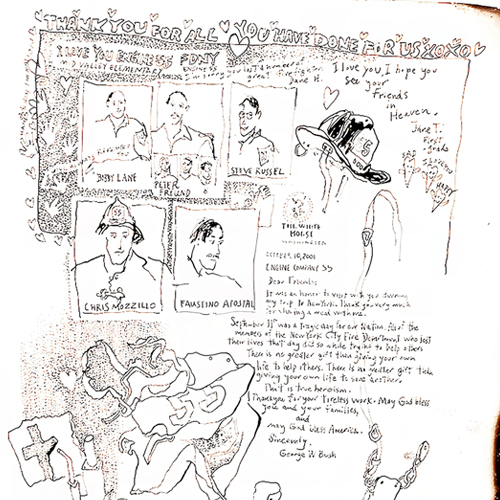 THANK YOU FOR ALL YOU HAVE DONE FOR US XOXO
I LOVE YOU ENGINE 55 FDNY
VALLEY ELEMENTARY
I'm sorry you lost
great firefighters
Jane H.
I love you I hope you
see your
friends
in
Heaven.
Jane T.
First
Grade
SAD
HAPPY
BOBBY LANE
PETER
FREUND
STEVE RUSSEL
55
CHRIS MOZZILLO
FAUSTINO APOSTAL
THE WHITE
HOUSE
WASHINGTON
OCTOBER 10, 2001
ENGINE COMPANY 55
Dear Friends:
It was an honor to visit with you during
my trip to New York. Thank you very much
for sharing a meal with me.
September 11th was a tragic day for our Nation. All of the
members of the New York City Fire Department who lost
their lives that day did so while trying to help others
There is no greater gift than giving your own
life to help others. There is no greater gift than
giving your own life to save another.
That is true heroism.
Thank you for your tireless work. May God bless
you and your families,
and
may God bless America.
Sincerely,
George W Bush